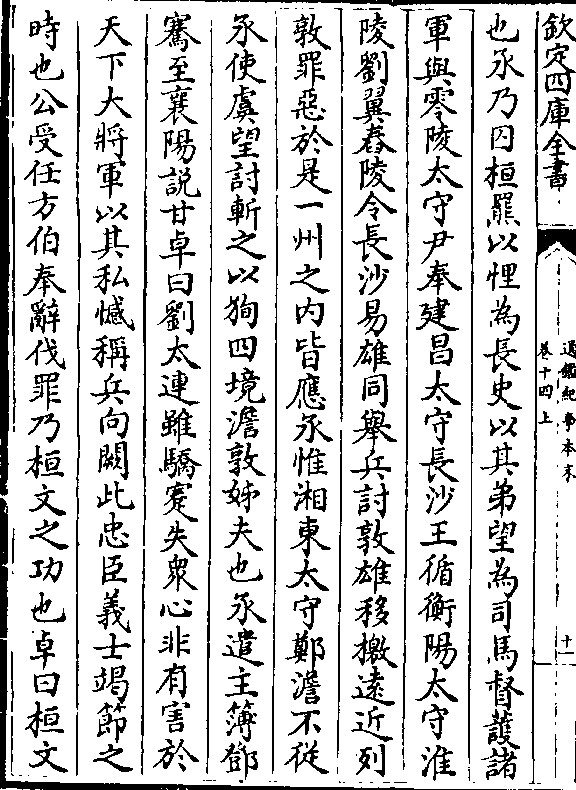 欽定四庫全書
通鑑紀事本末
卷十四上
十一
也氶乃囚桓羆以悝為長史以其弟望為司馬督護諸
軍與零陵太守尹奉建昌太守長沙王循衡陽太守淮
陵劉翼舂陵令長沙易雄同舉兵討敦雄移檄遠近列
敦罪惡於是一州之内皆應氶惟湘東太守鄭澹不從
氶使虞望討斬之以狥四境澹敦姊夫也氶遣主簿鄧
騫至襄陽説甘卓曰劉太連雖驕蹇失衆心非有害於
天下大將軍以其私憾稱兵向闕此忠臣義士竭節之
時也公受任方伯奉辭伐罪乃桓文之功也卓曰桓文